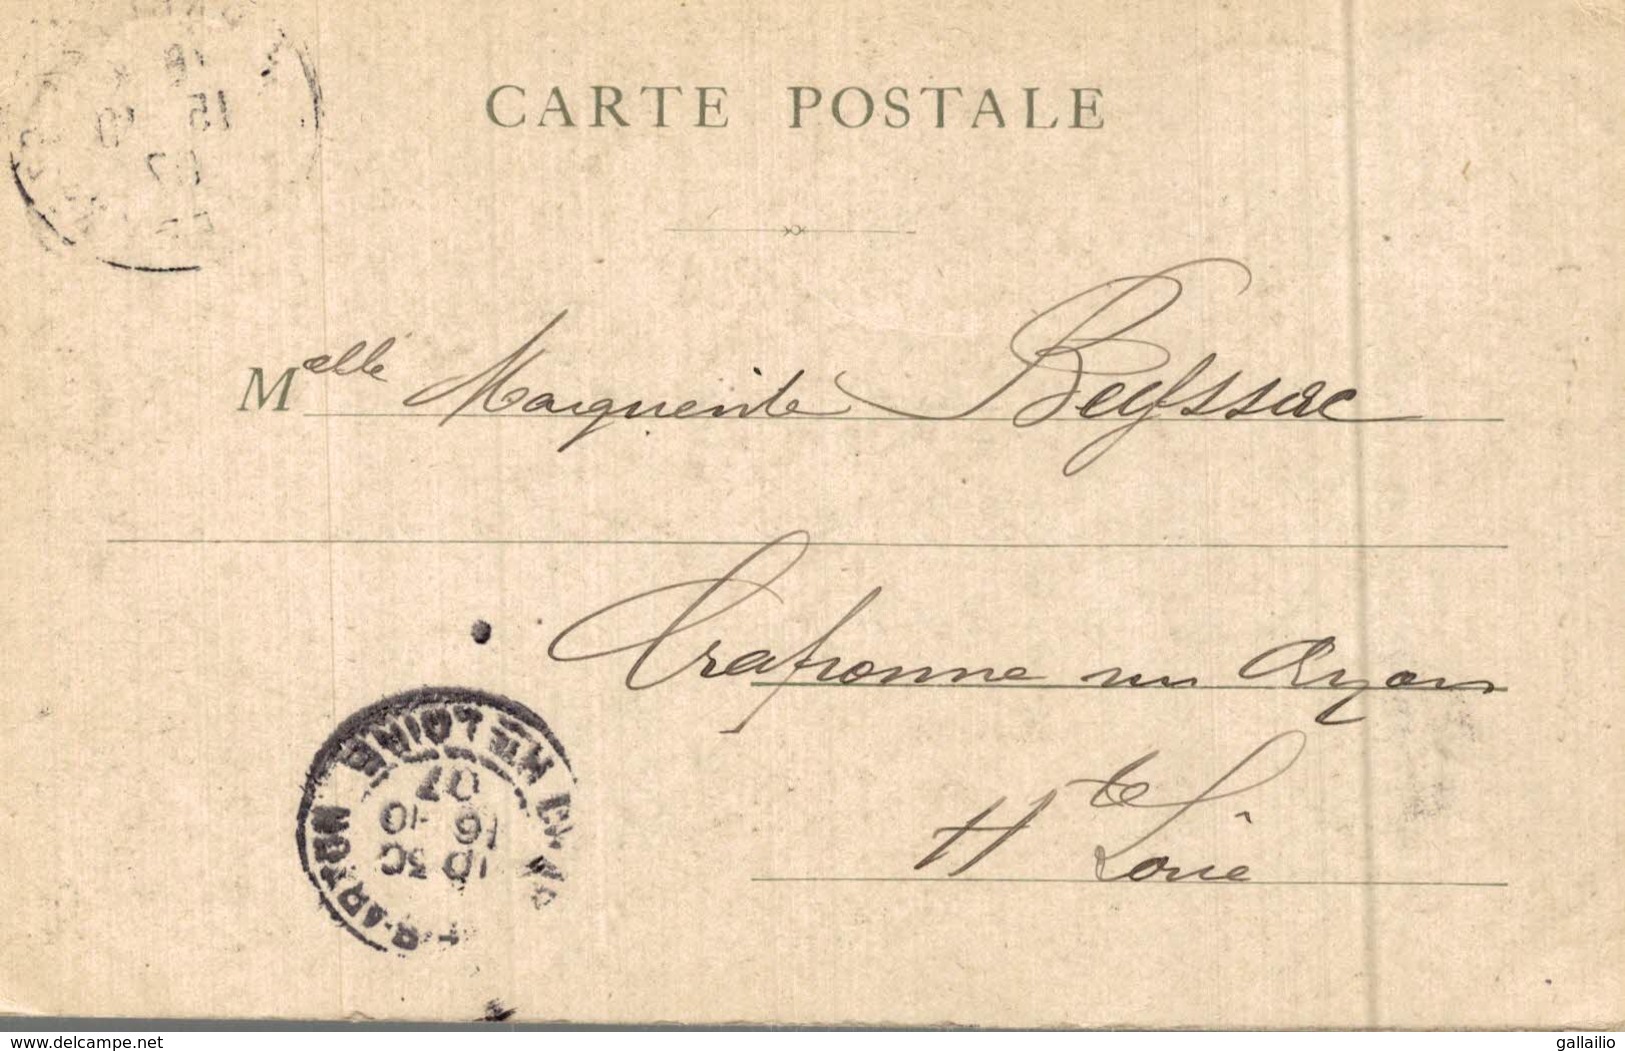 CARTE POSTALE
Melle Marguerite Beyssac
Craponne sur Arzon
Hte Loire
HTE LOIRE
10 30
16 -10
07
15 10
07
www.delcampe.net
gallailio